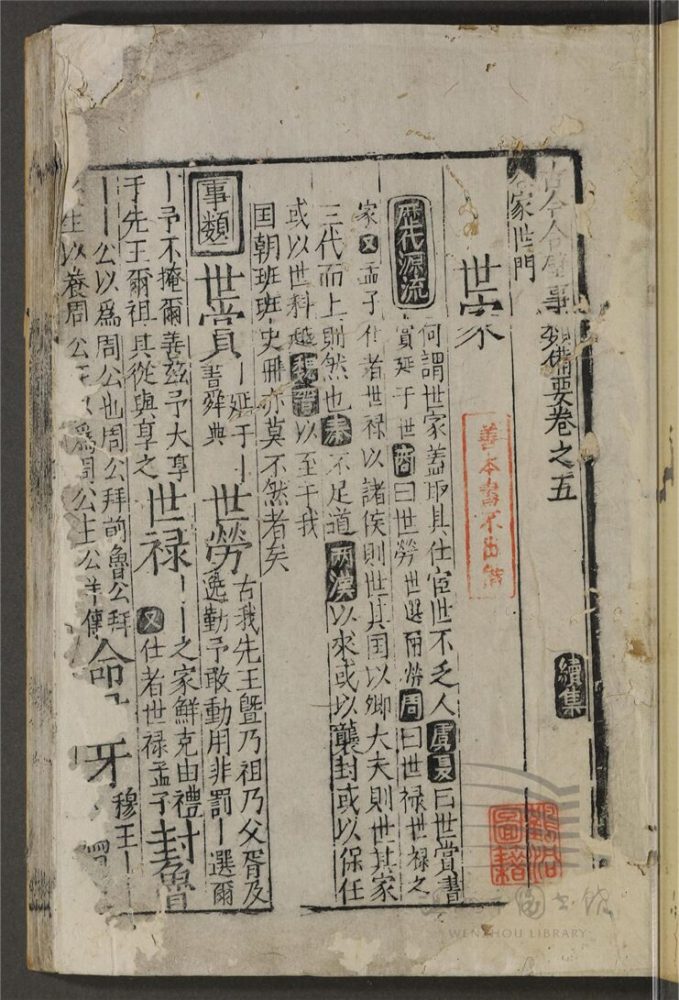 古今合璧事類備要卷之五 續集
家世門
世家
歷代源流 何謂世家蓋取其仕宦世不乏人虞夏曰世賞書
賞延于世商曰世勞世選爾勞周曰世禄世禄之
家又孟子仕者世禄以諸侯則世其国以卿大夫則世其家
三代而上則然也秦不足道兩漢以來或以襲封或以保任
或以世科越魏晉以至于我
国朝班班史冊亦莫不然者矣
事類 世賞 ｜延于｜書舜典 世勞 古我先王暨乃祖乃父胥及逸勤予敢動用非罰｜選爾
｜予不掩爾善兹予大享于先王爾祖其從與享之 世禄 ｜｜之家鮮克由禮又仕者世禄孟子 封魯
｜｜公以爲周公也周公拜前魯公拜
生以養周公 爲周公主公羊傳 命 牙 穆王｜
善本書不出借
圖籍
WENZHOU LIBRARY